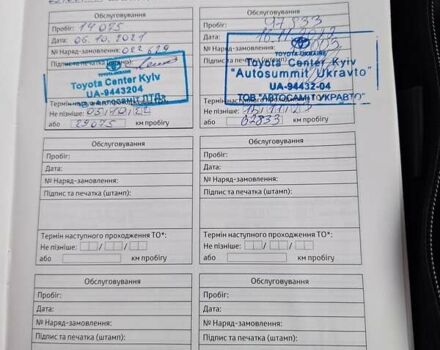 Обслуговування
Пробіг: 14 075
Дата: 06.10.2021
№ Наряд-замовлення: 022 629
Підпис та печатка
TOYOTA-UKRAINE
Toyota Center Kyiv
UA-9443204
Термін
Не пізніше:
або 29075 км пробігу
Обслуговування
Пробіг: 47833
Дата:
№ Наряд-замовлення:
Підпис та
TOYOTA-UKRAINE
Toyota Center Kyiv
"Autosummit Ukravto"
UA-94432-04
ТОВ "АВТОСАМІТ УКРАВТО"
Термін
Не пізніше:
або 62833 км пробігу
Обслуговування
Пробіг:
Дата:
№ Наряд-замовлення:
Підпис та печатка (штамп):
Термін наступного проходження ТО*:
Не пізніше: / /
або км пробігу
Обслуговування
Пробіг:
Дата:
№ Наряд-замовлення:
Підпис та печатка (штамп):
Термін наступного проходження ТО*:
Не пізніше: / /
або км пробігу
Обслуговування
Пробіг:
Дата:
№ Наряд-замовлення:
Підпис та печатка (штамп):
Обслуговування
Пробіг:
Дата:
№ Наряд-замовлення:
Підпис та печатка (штамп):